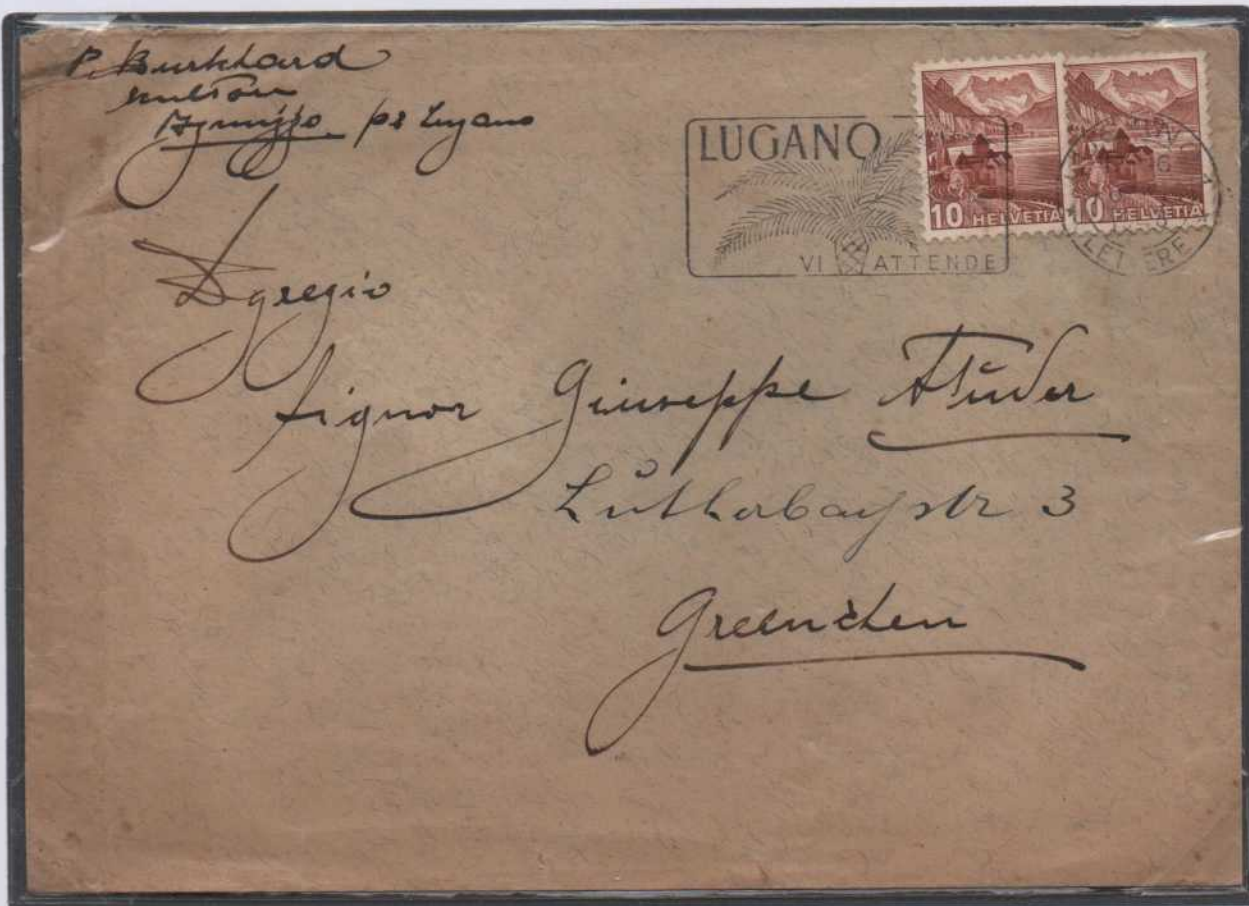 P. Burkhard
per Lugano
LUGANO
VI ATTENDE
10 HELVETIA
10 HELVETIA
LETTERE
Egregio
Signor Giuseppe Studer
str 3
Greenchen